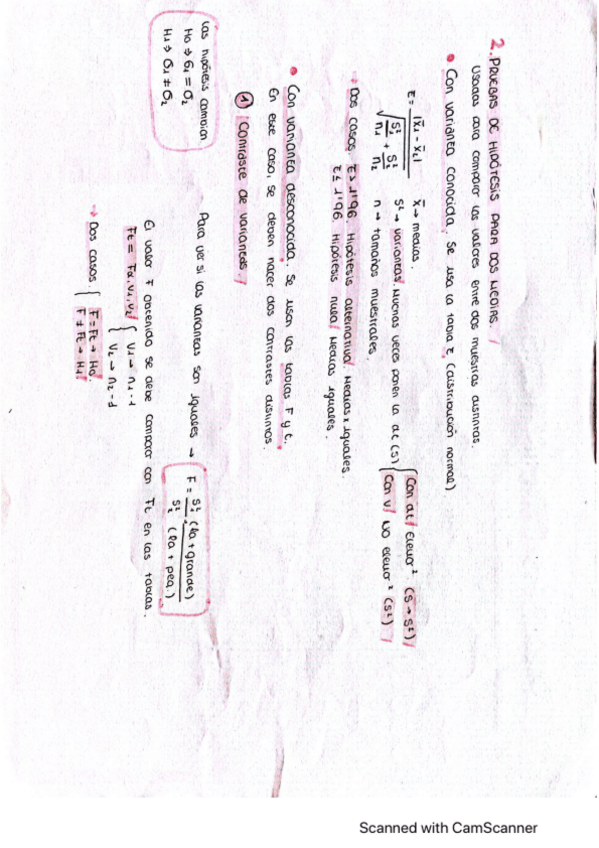 2. PRUEBAS DE HIPÓTESIS PARA DOS MEDIAS.
Usadas para comparar los valores entre dos muestras distintas.
• Con varianza conocida. Se usa la tabla z (distribución normal)
z = |x̄1 - x̄2| / √(S²1/n1 + S²2/n2)
x̄ → medias.
S² → varianzas. Muchas veces ponen la at (s) { Con at/ elevar² (s → s²)
Con v/ No elevar² (s²)
n → tamaños muestrales.
→ Dos casos z > 1'96. Hipótesis alternativa/ Medias ≠ iguales.
z ≤ 1'96. Hipótesis nula/ Medias iguales.
• Con varianza desconocida. Se usan las tablas F y t.
En este caso, se deben hacer dos contrastes distintos.
① Contraste de varianzas.
Las hipótesis cambian
H0 → σ1 = σ2
H1 → σ1 ≠ σ2
Para ver si las varianzas son iguales → F = S²1 (la + grande) / S²2 (la + peq.)
El valor F obtenido se debe comparar con Ft en las tablas.
Ft = Fα, v1, v2 { v1 → n1 - 1
v2 → n2 - 1
→ Dos casos { F = Ft → H0.
F ≠ Ft → H1
Scanned with CamScanner